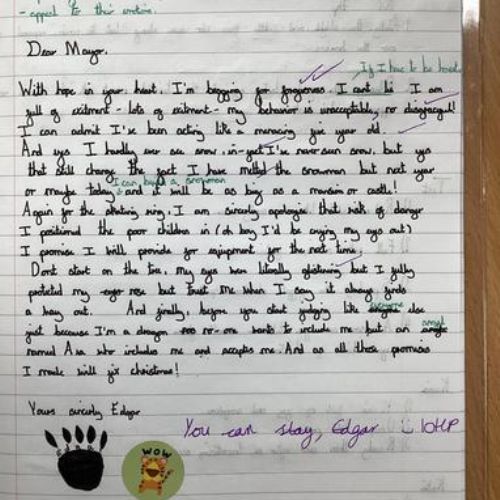 - appeal to their emotions.
Dear Mayor,
If I have to be honest
With hope in your heart, I'm begging for forgiveness. I cant lie I am
full of exitment - lots of exitment - my behavior is unacceptable, no disgraceful!
I can admit I've been acting like a menacing five year old.
And yes I hardly ever see snow, in-fact I've never seen snow, but yes
that still change the fact I have melted the snowman but next year
I can build a snowman
or maybe today and it will be as big as a mansion or castle!
Again for the skating ring, I am sincerly apologise that risk of danger
I positioned the poor children in (oh boy I'd be crying my eyes out)
I promise I will provide for equipment for the next time.
Dont start on the tree, my eyes were literally glistening but I fully
protected my rose but trust me when I say it always finds
a way out. And finally, before you start judging like everyone else
just because I'm a dragon no-one wants to include me but an angel
named Asa who includes me and accepts me. And as all these promises
I made will fix christmas!
Yours sincerly Edgar
WOW
You can stay, Edgar 10HP